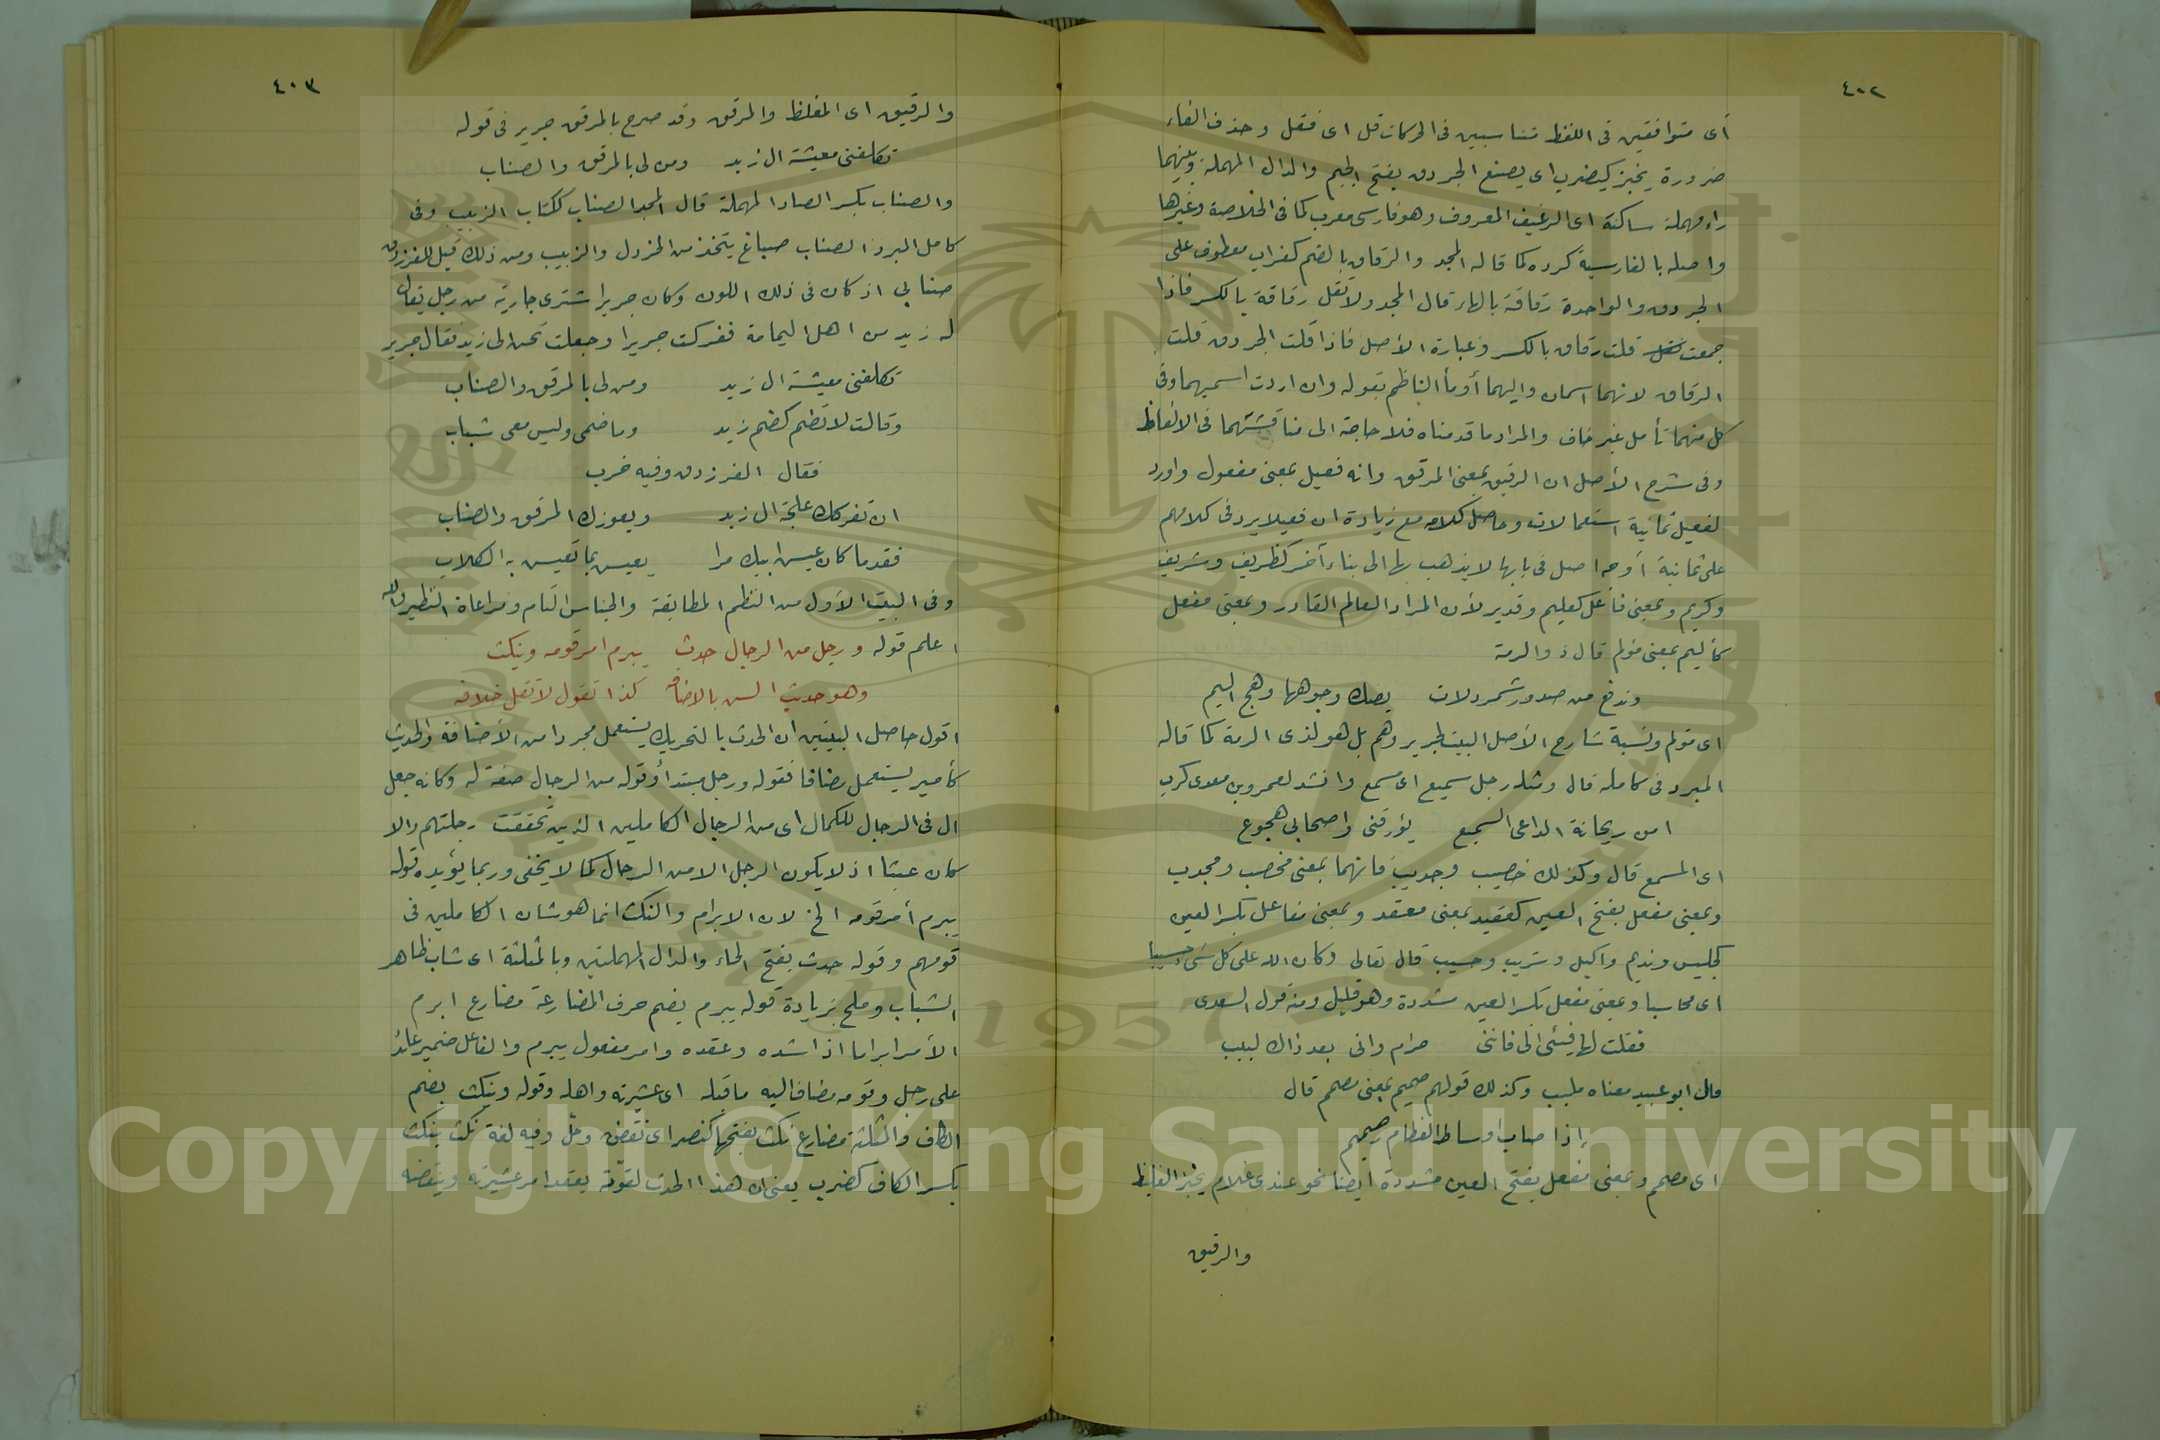 ٤٠٢
أى متوافقين فى اللفظ متناسبين فى الحركات قل اى فقل وحذف الفاء
ضرورة يخبز كيضرب اى يصنع الجردق بفتح الجيم والدال المهملة وبينهما
راء مهملة ساكنة اى الرغيف المعروف وهو فارسى معرب كما فى الخلاصة وغيرها
واصله بالفارسية كرده كما قاله المجد والرقاق بالضم كغراب معطوف على
الجردق والواحدة رقاقة بالهاء قال المجد ولا تقل رقاقة بالكسر فاذا
جمعت قلت رقاق بالكسر وعبارة الأصل فاذا قلت الجردق قلت
الرقاق لانهما اسمان واليهما أومأ الناظم بقوله وان اردت اسميهما وفى
كل منهما تأمل غير خاف والمراد ما قدمناه فلا حاجة الى مناقشتهما فى الالفاظ
وفى شرح الأصل ان الرقيق بمعنى المرقق وانه فعيل بمعنى مفعول واورد
لفعيل ثمانية استعمالات وحاصل كلامه مع زيادة ان فعيلا يرد فى كلامهم
على ثمانية أوجه اصل فى بابها لا يذهب بها الى بناء آخر كظريف وشريف
وكريم وبمعنى فاعل كعليم وقدير لأن المراد العالم القادر وبمعنى مفعل
كأليم بمعنى مؤلم قال ذو الرمة
ونرفع من صدور شمردلات يصك وجوهها وهج اليم
اى مؤلم ونسبة شارح الأصل البيت لجرير وهم بل هو لذى الرمة كما قاله
المبرد فى كامله قال ومثله رجل سميع اى مسمع وانشد لعمرو بن معدى كرب
امن ريحانة الداعى السميع يؤرقنى واصحابى هجوع
اى المسمع قال وكذلك خصيب وجديب فانهما بمعنى مخصب ومجدب
وبمعنى مفعل بفتح العين كعقيد بمعنى معتقد وبمعنى مفاعل بكسر العين
كجليس ونديم واكيل وشريب وحسيب قال تعالى وكان الله على كل شىء حسيبا
اى محاسبا وبمعنى مفعل بكسر العين مشددة وهو قليل ومنه قول السعدى
فقلت لها فيئى الى فاننى حرام وانى بعد ذاك لبيب
قال ابو عبيد معناه ملبب وكذلك قولهم صميم بمعنى مصمم قال
اذا صاب اوساط العظام صميم
اى مصمم وبمعنى مفعل بفتح العين مشددة ايضا نحو عندى غلام يخبز الغليظ
والرقيق
٤٠٣
والرقيق اى المغلظ والمرقق وقد صرح بالمرقق جرير فى قوله
تكلفنى معيشة ال زيد ومن لى بالمرقق والصناب
والصناب بكسر الصاد المهملة قال المجد الصناب ككتاب الزبيب وفى
كامل المبرد الصناب صباغ يتخذ من الخردل والزبيب ومن ذلك قيل للفرزدق
صنابى اذ كان فى ذلك اللون وكان جرير اشترى جارية من رجل يقال
له زيد من اهل اليمامة ففركت جريرا وجعلت تحن الى زيد فقال جرير
تكلفنى معيشة ال زيد ومن لى بالمرقق والصناب
وقالت لا تضم كضم زيد وما ضمى وليس معى شباب
فقال الفرزدق وفيه خرب
ان تفركك علجة ال زيد ويعوزك المرقق والصناب
فقدما كان عيش ابيك مرا يعيش بما تعيش به الكلاب
وفى البيت الأول من النظم المطابقة والجناس التام ومراعاة النظير والله
اعلم قوله ورجل من الرجال حدث يبرم امر قومه وينكث
وهو حديث السن بالاضافه كذا تقول لا تقل خلافه
اقول حاصل البيتين ان الحدث بالتحريك يستعمل مجردا من الأضافة والحديث
كأمير يستعمل مضافا فقوله ورجل مبتدأ وقوله من الرجال صفة له وكانه جعل
ال فى الرجال للكمال اى من الرجال الكاملين الذين تحققت رجلتهم والا
كان عبثا اذ لا يكون الرجل الا من الرجال كما لا يخفى وربما يؤيده قوله
يبرم أمر قومه الخ لان الابرام والنكث انما هو شان الكاملين فى
قومهم وقوله حدث بفتح الحاء والدال المهملتين وبالمثلثة اى شاب ظاهر
الشباب وملح بزيادة قوله يبرم بضم حرف المضارعة مضارع ابرم
الأمر ابراما اذا شده وعقده وامر مفعول يبرم والفاعل ضمير عائد
على رجل وقومه مضاف اليه ما قبله اى عشيرته واهله وقوله وينكث بضم
الكاف والمثلثة مضارع نكث بفتحها كنصر اى نقض وحل وفيه لغة نكث ينكث
بكسر الكاف كضرب يعنى ان هذا الحدث لقوته يعقد امر عشيرته وينقضه
Copyright © King Saud University
1957